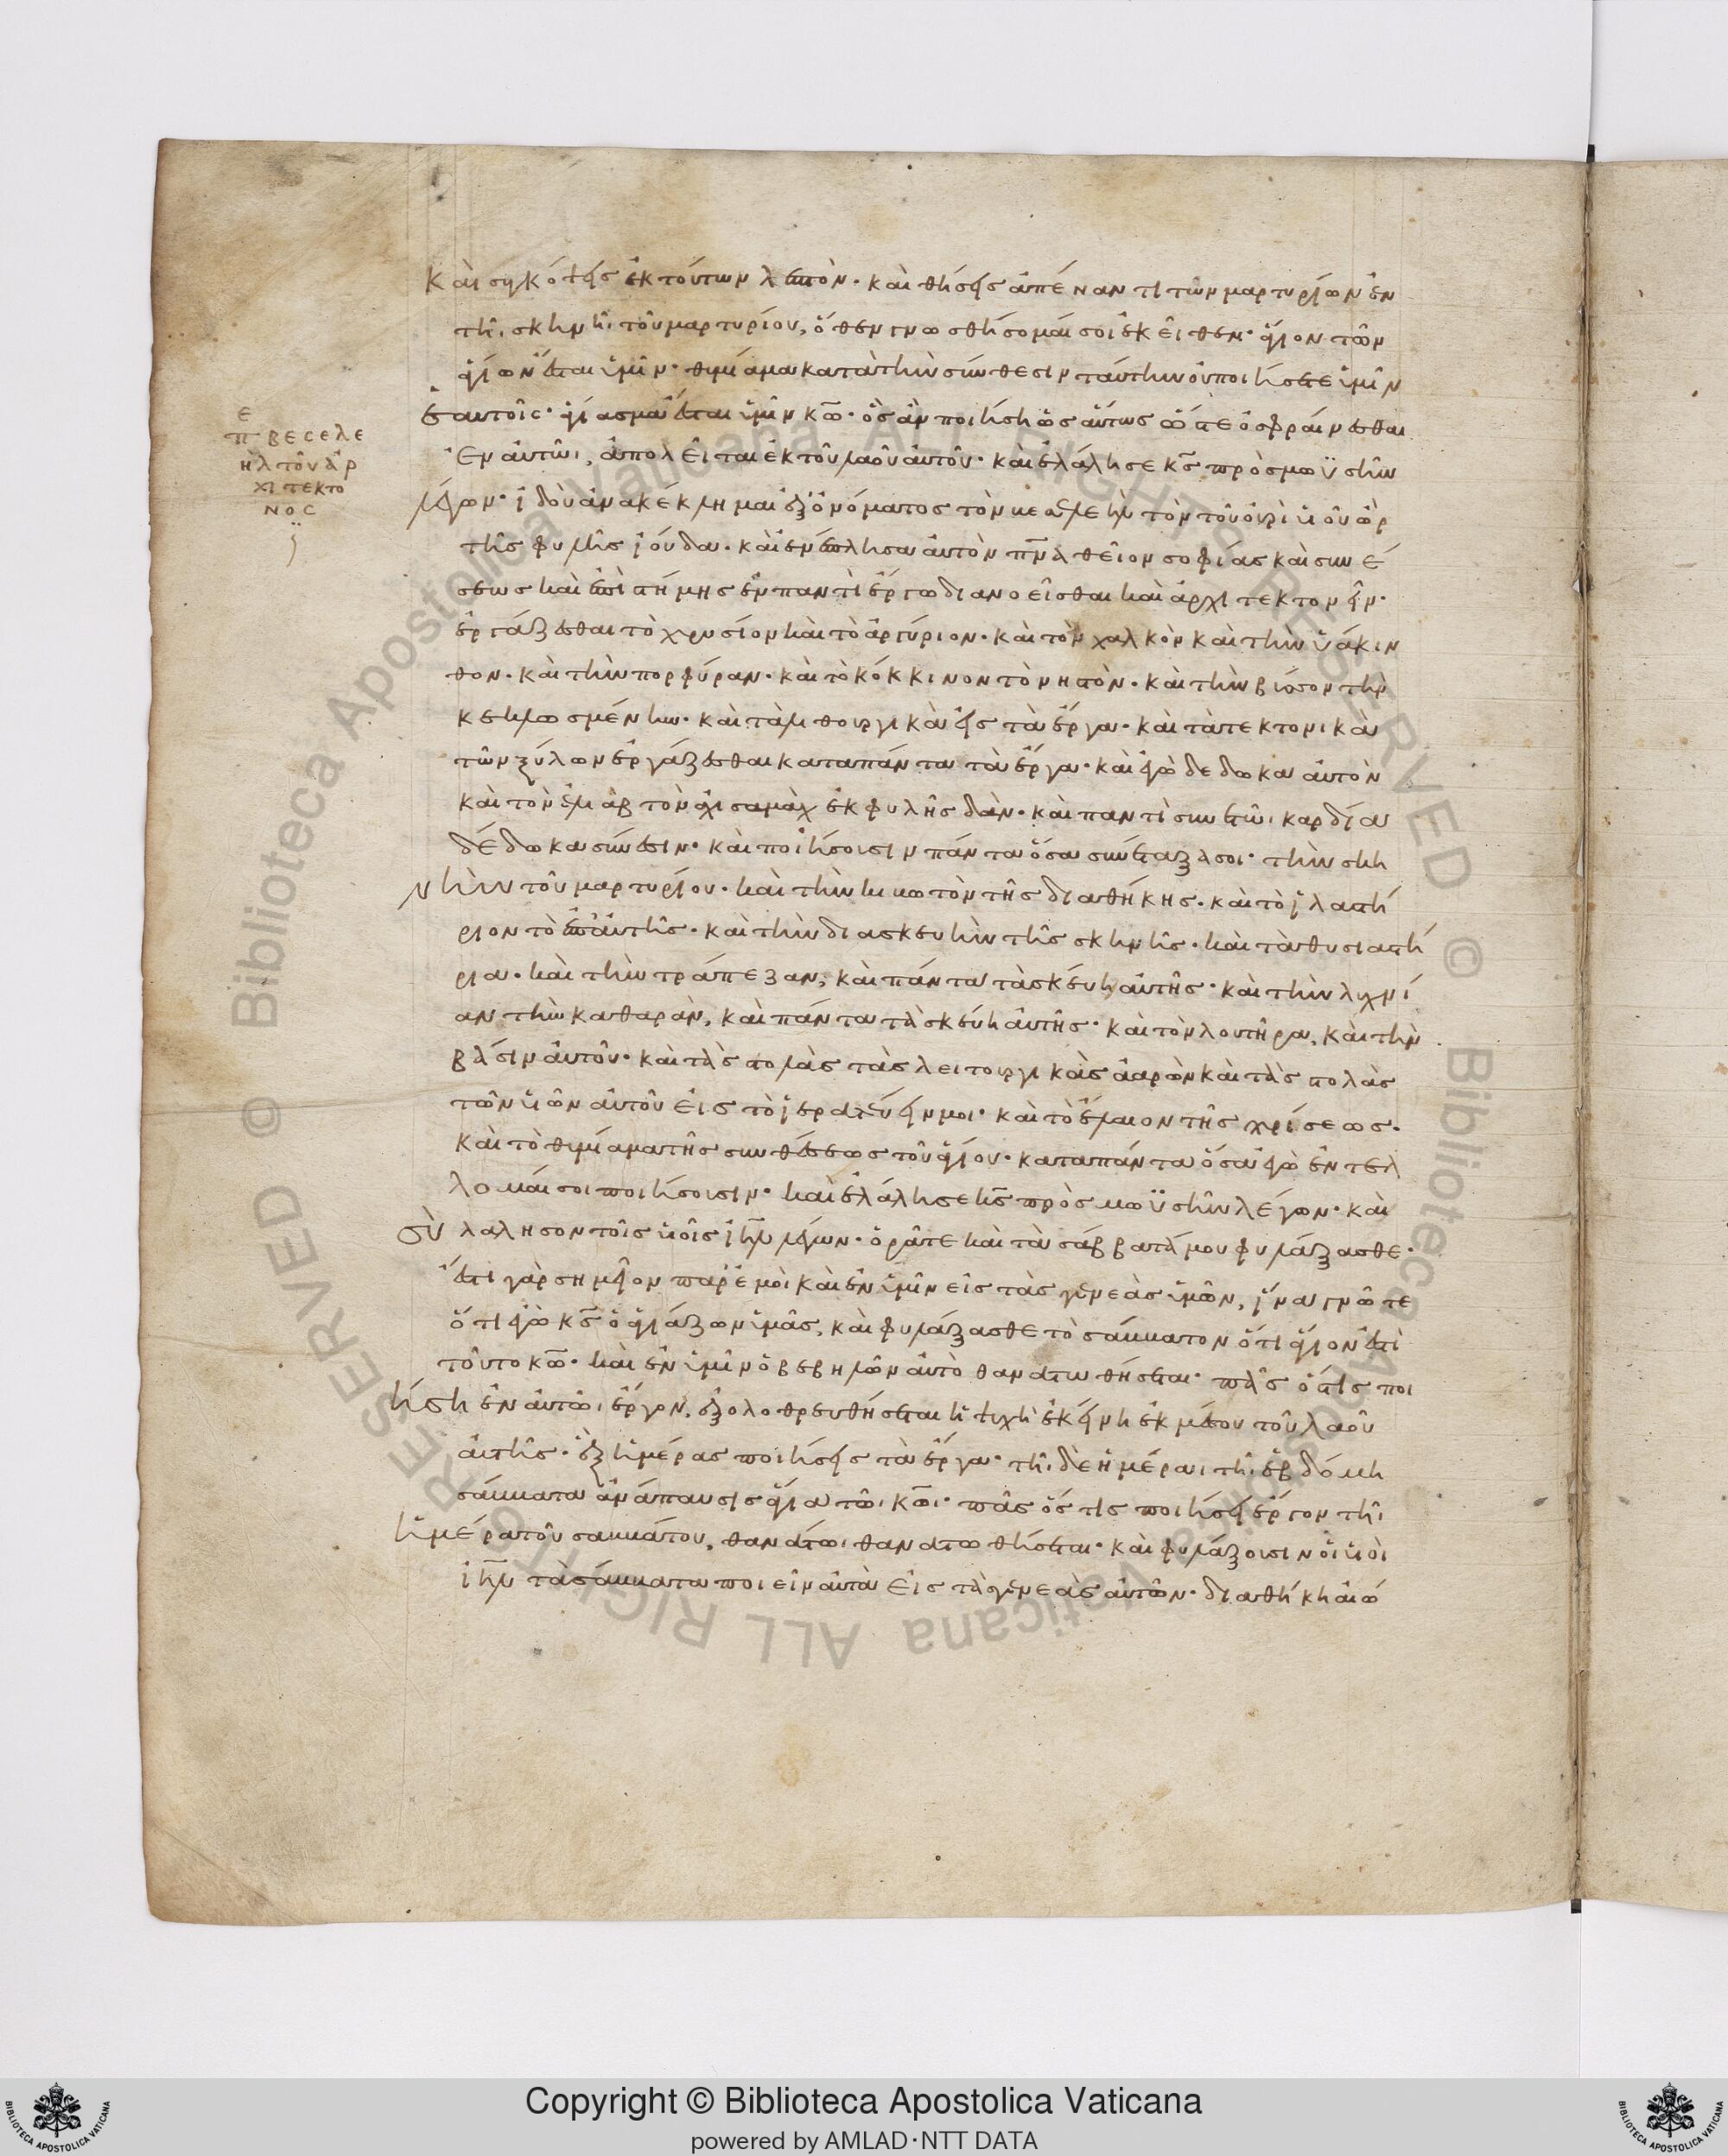 καὶ συγκόψεις ἐκ τούτων λεπτὸν· καὶ θήσεις ἀπέναντι τῶν μαρτυρίων ἐν
τῆι σκηνῆι τοῦ μαρτυρίου, ὅθεν γνωσθήσομαί σοι ἐκεῖθεν· ἅγιον τῶν
ἁγίων ἔσται ὑμῖν· θυμίαμα κατὰ τὴν σύνθεσιν ταύτην οὐ ποιήσετε ὑμῖν
ἑαυτοῖς· ἁγίασμα ἔσται ὑμῖν κω· ὃς ἂν ποιήση ὡσαύτως ὥστε ὀσφραίνεσθαι
ἐν αὐτῶι, ἀπολεῖται ἐκ τοῦ λαοῦ αὐτοῦ· καὶ ἐλάλησε κς πρὸς μωϋσῆν
λέγων· ἰδοὺ ἀνακέκλημαι ἐξ ὀνόματος τὸν βεσελεὴλ τὸν τοῦ οὐρὶ υἱοῦ ὢρ
τῆς φυλῆς ἰούδα· καὶ ἐνέπλησα αὐτὸν πνα θεῖον σοφίας καὶ συνέ
σεως καὶ ἐπιστήμης ἐν παντὶ ἔργω διανοεῖσθαι καὶ ἀρχιτεκτονεῖν·
ἐργάζεσθαι τὸ χρυσίον καὶ τὸ ἀργύριον· καὶ τὸν χαλκὸν καὶ τὴν ὑάκιν
θον· καὶ τὴν πορφύραν· καὶ τὸ κόκκινον τὸ νηστὸν· καὶ τὴν βύσσον τὴν
κεκλωσμένην· καὶ τὰ λιθουργικὰ εἰς τὰ ἔργα· καὶ τὰ τεκτονικὰ
τῶν ξύλων ἐργάζεσθαι κατὰ πάντα τὰ ἔργα· καὶ ἐγὼ δέδωκα αὐτὸν
καὶ τὸν ἐλιὰβ τὸν ἀχισαμὰχ ἐκ φυλῆς δὰν· καὶ παντὶ συνετῶι καρδία
δέδωκα σύνεσιν· καὶ ποιήσουσιν πάντα ὅσα συνέταξά σοι· τὴν σκη
νὴν τοῦ μαρτυρίου· καὶ τὴν κιβωτὸν τῆς διαθήκης· καὶ τὸ ἱλαστή
ριον τὸ ἐπ' αὐτῆς· καὶ τὴν διασκευὴν τῆς σκηνῆς· καὶ τὰ θυσιαστή
ρια· καὶ τὴν τράπεζαν, καὶ πάντα τὰ σκεύη αὐτῆς· καὶ τὴν λυχνί
αν τὴν καθαρὰν, καὶ πάντα τὰ σκεύη αὐτῆς· καὶ τὸν λουτῆρα, καὶ τὴν
βάσιν αὐτοῦ· καὶ τὰς στολὰς τὰς λειτουργικὰς ἀαρὼν καὶ τὰς στολὰς
τῶν υἱῶν αὐτοῦ εἰς τὸ ἱερατεύειν μοι· καὶ τὸ ἔλαιον τῆς χρίσεως·
καὶ τὸ θυμίαμα τῆς συνθέσεως τοῦ ἁγίου· κατὰ πάντα ὅσα ἐγὼ ἐντέλ
λομαί σοι ποιήσουσιν· καὶ ἐλάλησε κς πρὸς μωϋσῆν λέγων· καὶ
σὺ λάλησον τοῖς υἱοῖς ιηλ λέγων· ὁρᾶτε καὶ τὰ σάββατά μου φυλάξασθε·
ἔστι γὰρ σημεῖον παρ' ἐμοὶ καὶ ἐν ὑμῖν εἰς τὰς γενεὰς ὑμῶν, ἵνα γνῶτε
ὅτι ἐγὼ κς ὁ ἁγιάζων ὑμᾶς, καὶ φυλάξασθε τὸ σάββατον ὅτι ἅγιον ἐστὶ
τοῦτο κω· καὶ ἐν ὑμῖν ὁ βεβηλῶν αὐτὸ θανάτω θήσεται· πᾶς ὅστις ποι
ήση ἐν αὐτῶι ἔργον, ἐξολοθρευθήσεται ἡ ψυχὴ ἐκείνη ἐκ μέσου τοῦ λαοῦ
αὐτῆς· ἓξ ἡμέρας ποιήσεις τὰ ἔργα· τῆι δὲ ἡμέραι τῆι ἑβδόμη
σάββατα ἀνάπαυσις ἁγία τῶι κωι· πᾶς ὅστις ποιήσει ἔργον τῆι
ἡμέρα τοῦ σαββάτου, θανάτωι θανατωθήσεται· καὶ φυλάξουσιν οἱ υἱοὶ
ιηλ τὰ σάββατα ποιεῖν αὐτὰ εἰς τὰς γενεὰς αὐτῶν· διαθήκη αἰώ
ε
π βεσελε
ὴλ τοῦ ἀρ
χιτεκτο
νος
Copyright © Biblioteca Apostolica Vaticana
powered by AMLAD·NTT DATA
BIBLIOTECA APOSTOLICA VATICANA
BIBLIOTECA APOSTOLICA VATICANA
© Biblioteca Apostolica Vaticana ALL RIGHTS RESERVED © Biblioteca Apostolica Vaticana ALL RIGHTS RESERVED